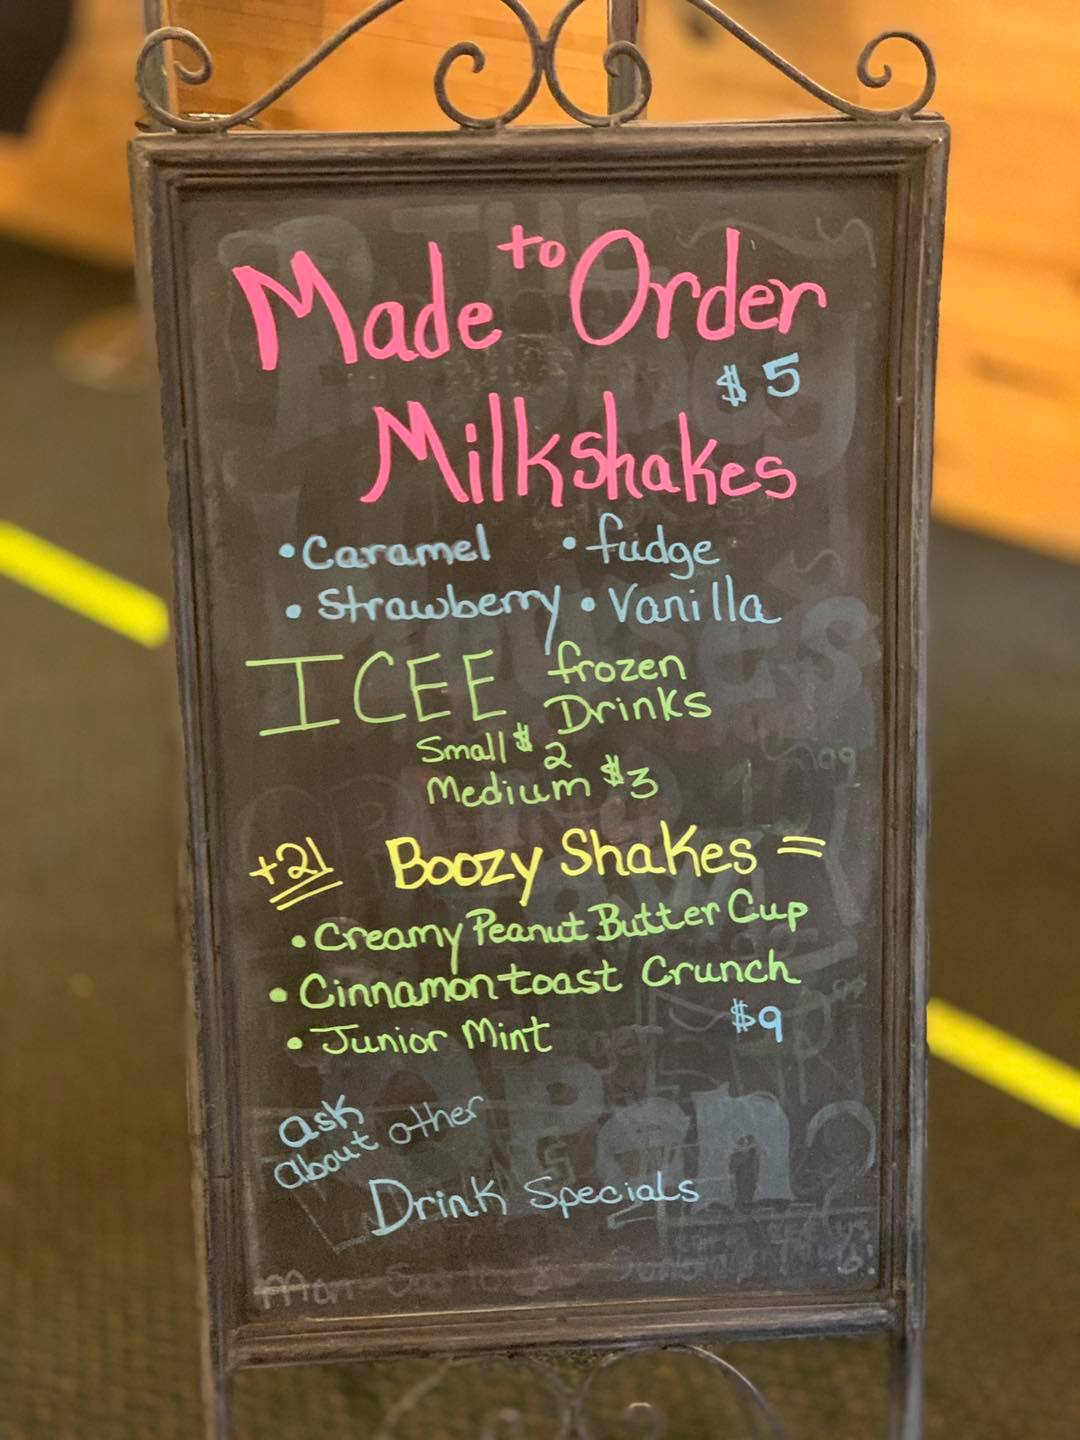 Made to Order
$5
Milkshakes
• Caramel • fudge
• Strawberry • Vanilla
ICEE frozen
Drinks
Small $2
Medium $3
+21 Boozy Shakes =
• Creamy Peanut Butter Cup
• Cinnamon toast Crunch
• Junior Mint $9
ask
about other
Drink Specials
OPen